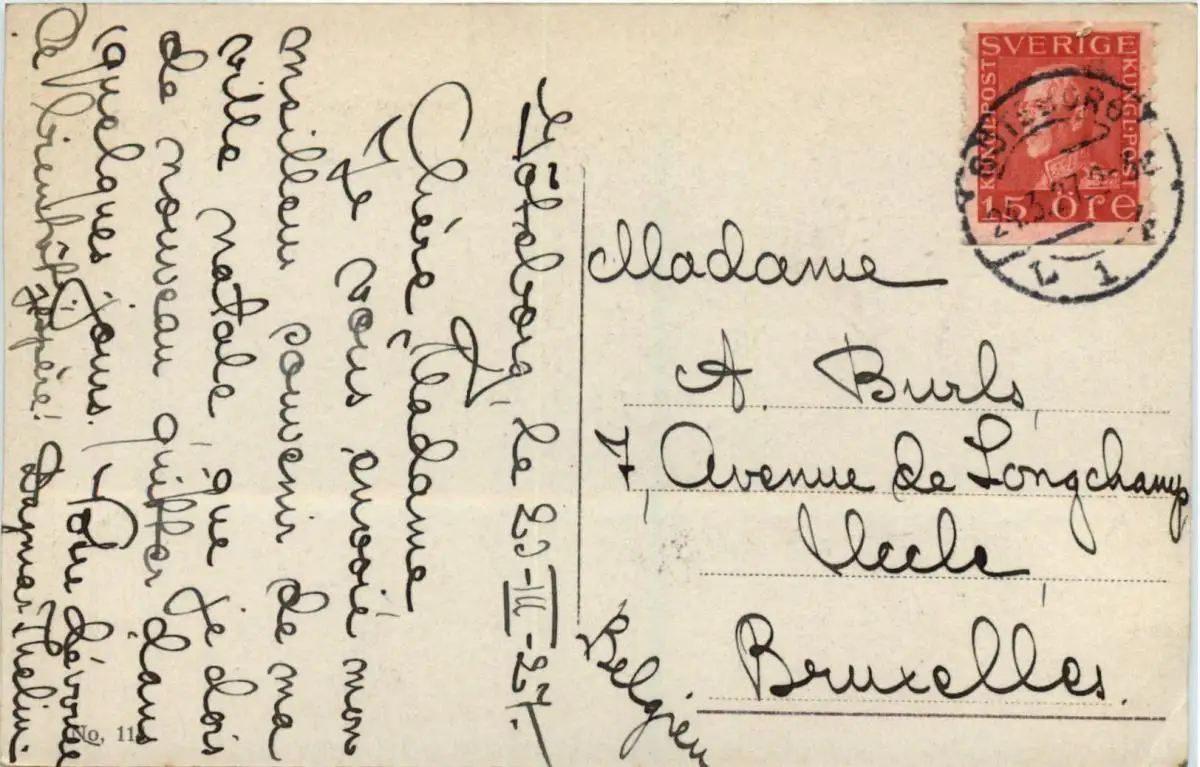 Göteborg, le 23-III-27.
Chère Madame
Je vous envoié mon
meilleur souvenir de ma
ville natale, que je dois
de nouveau quitter dans
quelques jours. Votre dévouée
A bientôt, j'éspére! Dagmar Thelin.
Madame
A. Burls,
7, Avenue de Longchamp
Uccle,
Bruxelles.
Belgien
SVERIGE
KUNGL·POST
KUNGL·POST
15 ÖRE
GÖTEBORG
27
L 1
No. 11